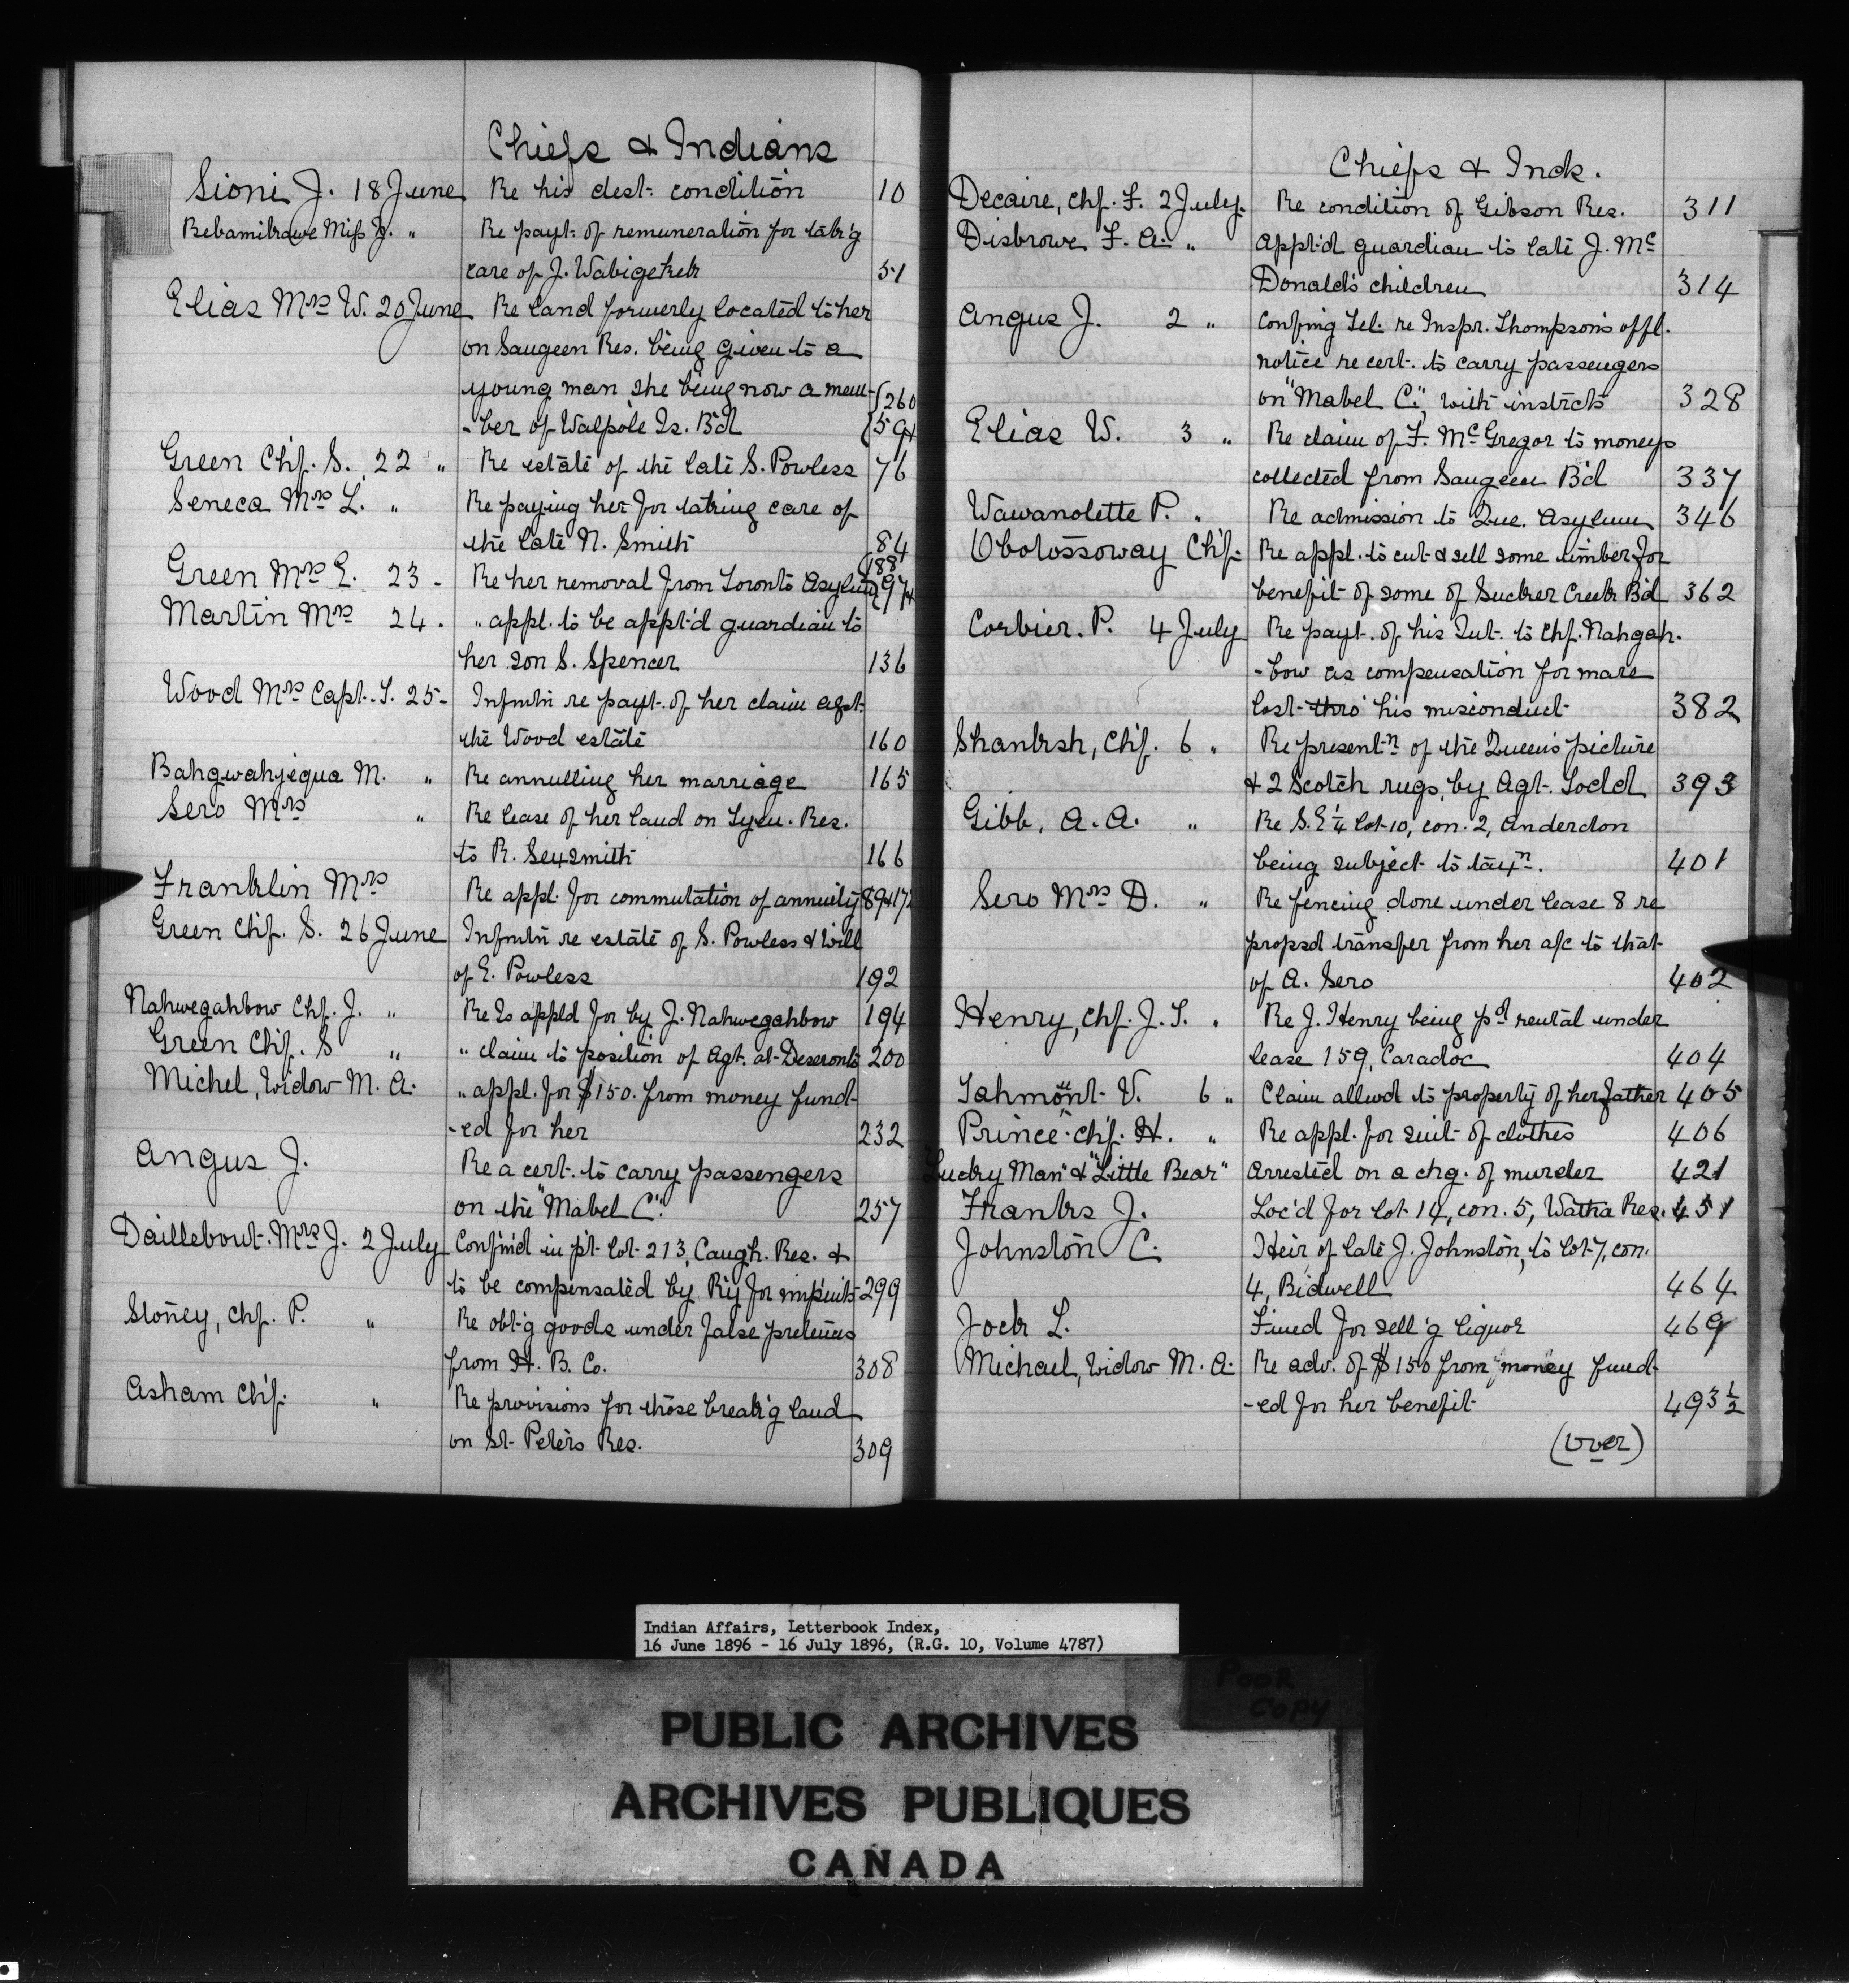 Chiefs & Indians
Sioni J. 18 June Re his dest. condition 10
Miss J. " Re payt. of remuneration for tak'g
care of J. Wabigekek 51
Elias Mrs W. 20 June Re land formerly located to her
on Saugeen Res. being given to a
young man she being now a mem- 260
-ber of Walpole Is. B'd 594
Green Chf. S. 22 " Re estate of the late S. Powless 76
Seneca Mrs L. " Re paying her for taking care of
the late N. Smith 84
Green Mrs E. 23 - Re her removal from Toronto Asylum 188
Martin Mrs 24 . " appl. to be appt'd guardian to
her son S. Spencer 136
Wood Mrs Capt. T. 25 - Infmtn re payt. of her claim agst.
the Wood estate 160
Bahgwahjequa M. " Re annulling her marriage 165
Sero Mrs " Re lease of her land on Tyen. Res.
to R. Sexsmith 166
Franklin Mrs Re appl. for commutation of annuity 89 & 172
Green Chf. S. 26 June Infmtn re estate of S. Powless & Will
of E. Powless 192
Nahwegahbow Chf. J. " Re Is appld for by J. Nahwegahbow 194
Green Chf. S " " claim to position of Agt. at Deseronto 200
Michel, Widow M. A. " appl. for $150. from money fund-
-ed for her 232
Angus J. Re a cert. to carry passengers
on the "Mabel C." 257
Daillebout. Mrs J. 2 July Confm'd in pt. lot 213, Caugh. Res. &
to be compensated by Ry for impmts 299
Stoney, Chf. P. " Re obt'g goods under false pretences
from H. B. Co. 308
Asham Chf. " Re provisions for those break'g land
on St. Peters Res. 309
Chiefs & Inds.
Decaire, Chf. F. 2 July. Re condition of Gibson Res. 311
Disbrowe F. A. " Appt'd guardian to late J. Mc
Donald's children 314
Angus J. 2 " Confing Tel. re Inspr. Thompson's offl.
notice re cert. to carry passengers
on "Mabel C.", with instrcts 328
Elias W. 3 " Re claim of F. McGregor to moneys
collected from Saugeen B'd 337
Wawanolette P. " Re admission to Que. Asylum 346
Obotossoway Chf. Re appl. to cut & sell some timber for
benefit of some of Sucker Creek B'd 362
Corbier. P. 4 July Re payt. of his Int. to Chf. Nahgah.
-bow as compensation for mare
lost thro' his misconduct 382
Shanksh, Chf. 6 " Re presentn of the Queen's picture
& 2 Scotch rugs, by Agt. Todd 393
Gibb, A. A. " Re S.E ¼ lot 10, con. 2, Anderdon
being subject to taxn. 401
Sero Mrs D. " Re fencing done under lease 8 re
propsd transfer from her a/c to that
of A. Sero 402
Henry, Chf. J. T. " Re J. Henry being pd rental under
lease 159, Caradoc 404
Tahmont V. 6 " Claim allwd to property of her father 405
Prince Chf. H. " Re appl. for suit of clothes 406
"Lucky Man" & "Little Bear" Arrested on a chg. of murder 421
Franks J. Loc'd for lot 14, con. 5, Watha Res. 451
Johnston C. Heir of late J. Johnston, to lot 7, con.
4, Bidwell 464
Jock L. Fined for sell'g liquor 469
Michael, Widow M. A. Re adv. of $150 from money fund-
-ed for her benefit 493 ½
(over)
Indian Affairs, Letterbook Index,
16 June 1896 - 16 July 1896, (R.G. 10, Volume 4787)
POOR
COPY
PUBLIC ARCHIVES
ARCHIVES PUBLIQUES
CANADA